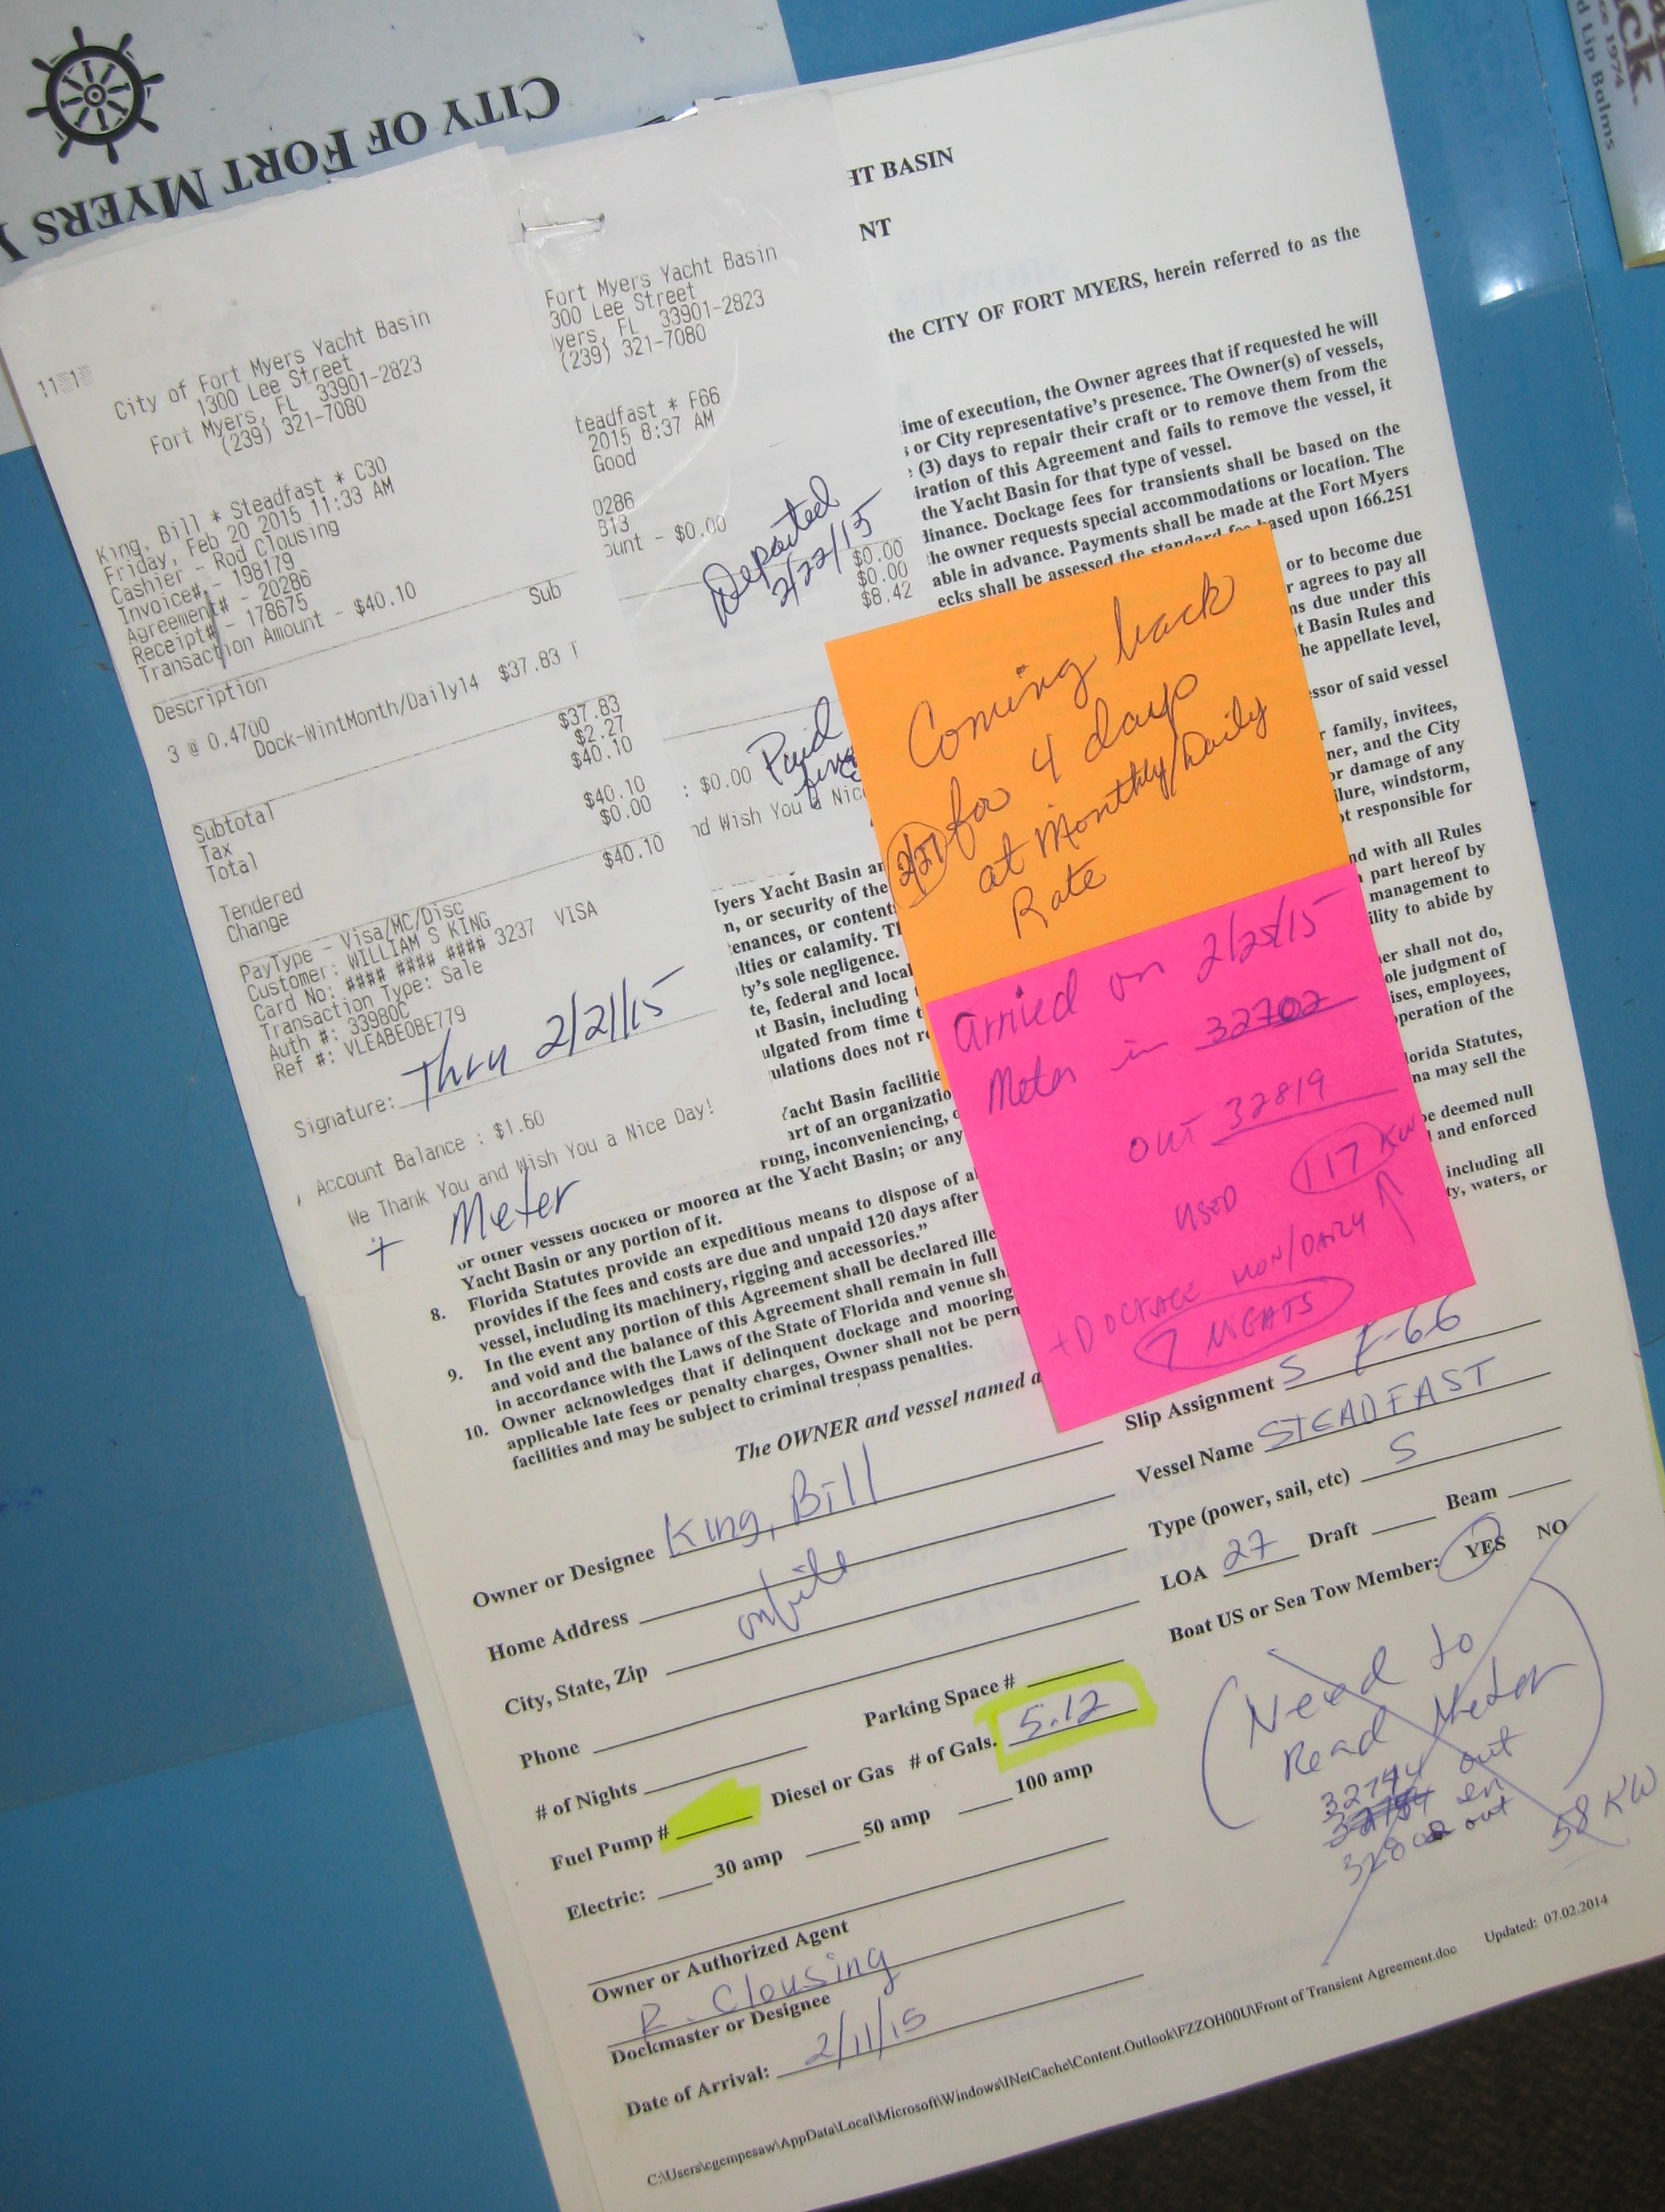 CITY OF FORT MYERS
ck.
ce 1974
d Lip Balms
City of Fort Myers Yacht Basin
1300 Lee Street
Fort Myers, FL 33901-2823
(239) 321-7080
King, Bill * Steadfast * C30
Friday, Feb 20 2015 11:33 AM
Cashier - Rod Clousing
Invoice# - 198179
Agreement# - 20286
Receipt# - 178675
Transaction Amount - $40.10
Description Sub
3 @ 0.4700
Dock-WintMonth/Daily14 $37.83 T
Subtotal $37.83
Tax $2.27
Total $40.10
Tendered $40.10
Change $0.00
$40.10
PayType - Visa/MC/Disc
Customer: WILLIAM S KING
Card No: #### #### #### 3237 VISA
Transaction Type: Sale
Auth #: 33980C
Ref #: VLEABE0BE779
Thru 2/21/15
Signature:
Account Balance : $1.60
We Thank You and Wish You a Nice Day!
+ Meter
Fort Myers Yacht Basin
300 Lee Street
yers, FL 33901-2823
(239) 321-7080
teadfast * F66
2015 8:37 AM
Good
0286
813
ount - $0.00
Departed
2/22/15
$0.00
$0.00
$8.42
: $0.00 Paid
nd Wish You a Nic
HT BASIN
NT
the CITY OF FORT MYERS, herein referred to as the
ime of execution, the Owner agrees that if requested he will
s or City representative's presence. The Owner(s) of vessels,
(3) days to repair their craft or to remove them from the
iration of this Agreement and fails to remove the vessel, it
the Yacht Basin for that type of vessel.
linance. Dockage fees for transients shall be based on the
he owner requests special accommodations or location. The
able in advance. Payments shall be made at the Fort Myers
ecks shall be assessed the standard fee based upon 166.251
or to become due
r agrees to pay all
ns due under this
t Basin Rules and
he appellate level,
ssor of said vessel
r family, invitees,
ner, and the City
or damage of any
ilure, windstorm,
ot responsible for
nd with all Rules
part hereof by
management to
ility to abide by
er shall not do,
ole judgment of
ises, employees,
peration of the
lorida Statutes,
na may sell the
be deemed null
and enforced
including all
ty, waters, or
Coming back
2/27 for 4 days
at Monthly/Daily
Rate
Arrived on 2/25/15
Meter in 32702
OUT 32819
USED 117 KW
+ DOCKAGE MON/DAILY
7 NIGHTS
lyers Yacht Basin an
n, or security of the
enances, or content
lties or calamity. T
ty's sole negligence.
te, federal and local
t Basin, including
ulgated from time t
ulations does not r
Yacht Basin facilitie
art of an organizatio
rbing, inconveniencing, o
or other vessels docked or moored at the Yacht Basin; or any
Yacht Basin or any portion of it.
8. Florida Statutes provide an expeditious means to dispose of a
provides if the fees and costs are due and unpaid 120 days after
vessel, including its machinery, rigging and accessories."
9. In the event any portion of this Agreement shall be declared ille
and void and the balance of this Agreement shall remain in full
in accordance with the Laws of the State of Florida and venue sh
10. Owner acknowledges that if delinquent dockage and mooring
applicable late fees or penalty charges, Owner shall not be perm
facilities and may be subject to criminal trespass penalties.
The OWNER and vessel named a
Owner or Designee King, Bill
Home Address onfile
City, State, Zip
Phone
Parking Space #
# of Nights
Diesel or Gas # of Gals. 5.12
Fuel Pump #
Electric: 30 amp 50 amp 100 amp
Owner or Authorized Agent
R. Clousing
Dockmaster or Designee
Date of Arrival: 2/11/15
Slip Assignment S F-66
Vessel Name STEADFAST
Type (power, sail, etc) S
LOA 27 Draft Beam
Boat US or Sea Tow Member: YES NO
Need to
Read Meter
32744 out
in
32802 out
58 KW
C:\Users\cgempesaw\AppData\Local\Microsoft\Windows\INetCache\Content.Outlook\FZZOH00U\Front of Transient Agreement.doc Updated: 07.02.2014